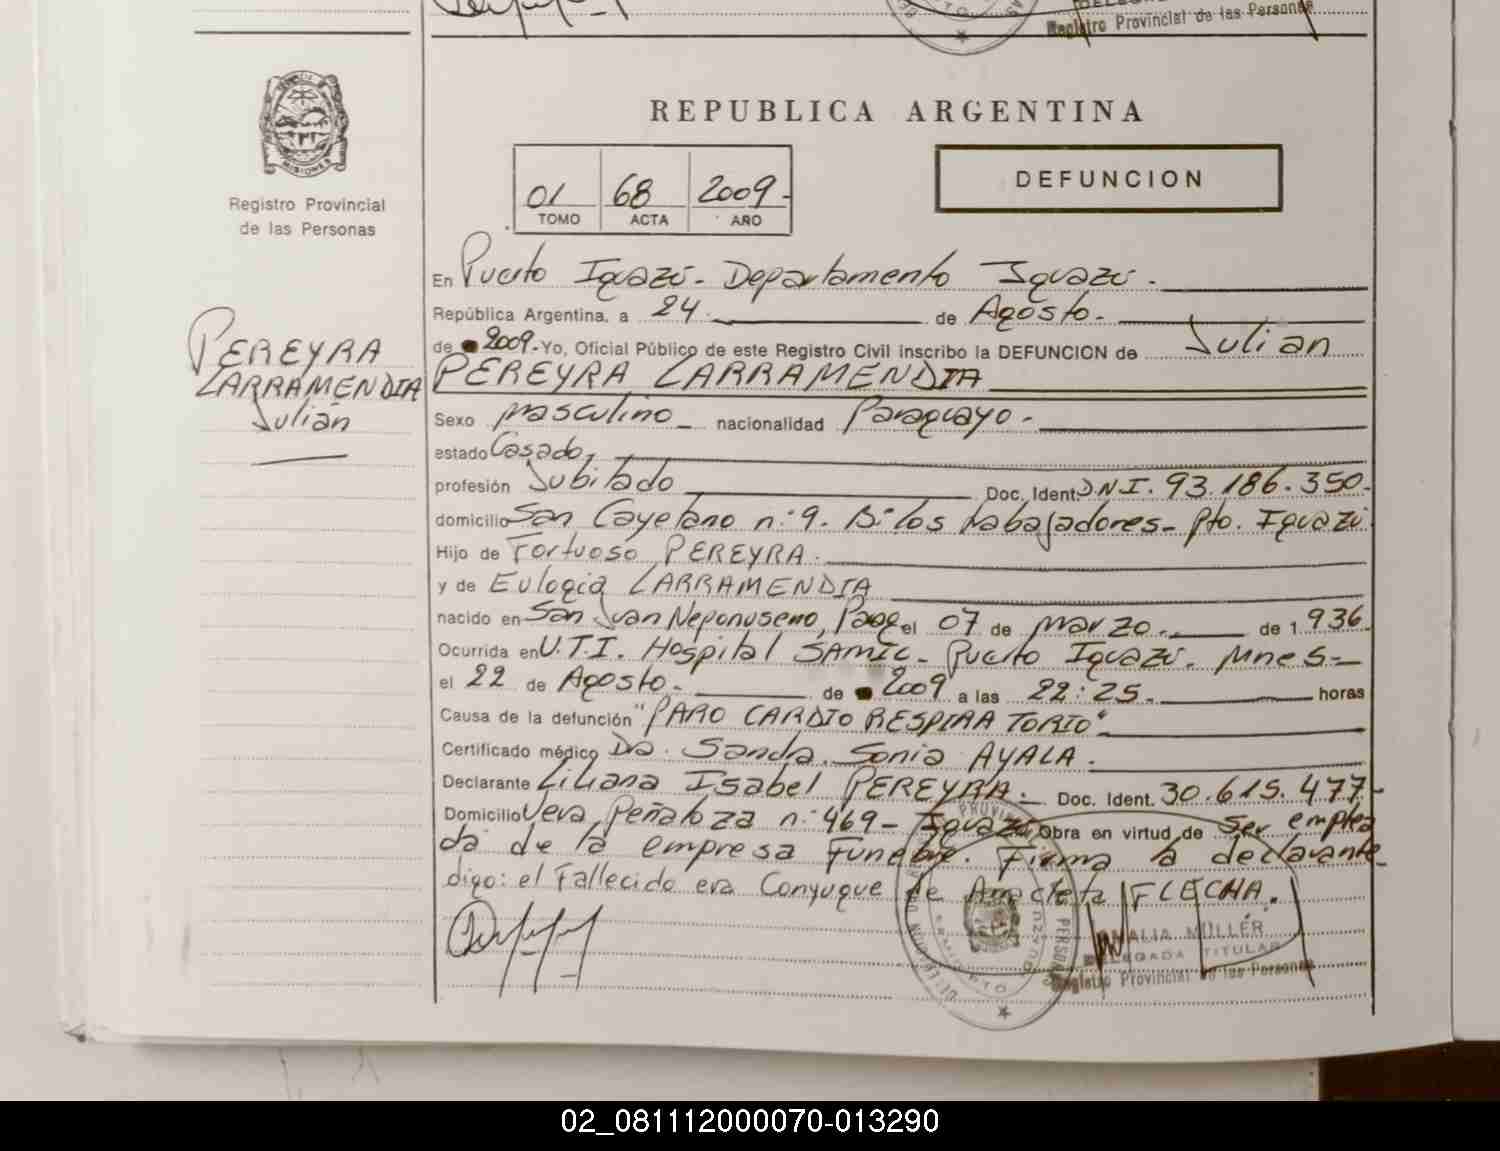 Registro Provincial de las Personas
MISIONES
Registro Provincial
de las Personas
PEREYRA
LARRAMENDIA
Julián
REPUBLICA ARGENTINA
01 68 2009-
TOMO ACTA AÑO
DEFUNCION
En Puerto Iguazú- Departamento Iguazú-
República Argentina, a 24 de Agosto-
de 2009- Yo, Oficial Público de este Registro Civil inscribo la DEFUNCION de Julian
PEREYRA LARRAMENDIA
Sexo masculino - nacionalidad Paraguayo-
estado Casado,
profesión Jubilado Doc. Ident. DNI. 93.186.350-
domicilio San Cayetano n:9. B: los trabajadores- Pto. Iguazú
Hijo de Fortuoso PEREYRA.
y de Eulogia LARRAMENDIA
nacido en San Juan Neponuseno, Parag el 07 de marzo.- de 1.936
Ocurrida en U.T.I. Hospital SAMIC- Puerto Iguazú. Mnes-
el 22 de Agosto- de 2009 a las 22:25- horas
Causa de la defunción "PARO CARDIO RESPIRATORIO"
Certificado médico Dra. Sandra Sonia AYALA.
Declarante Liliana Isabel PEREYRA.- Doc. Ident. 30.615.477-
Domicilio Vera Peñaloza n:469- Iguazú Obra en virtud de Ser emplea
da de la empresa Funebre. Firma la declarante
digo: el Fallecido era Conyugue de Anacleta FLECHA.
AMALIA MÜLLER
DELEGADA TITULAR
Registro Provincial de las Personas
02_081112000070-013290